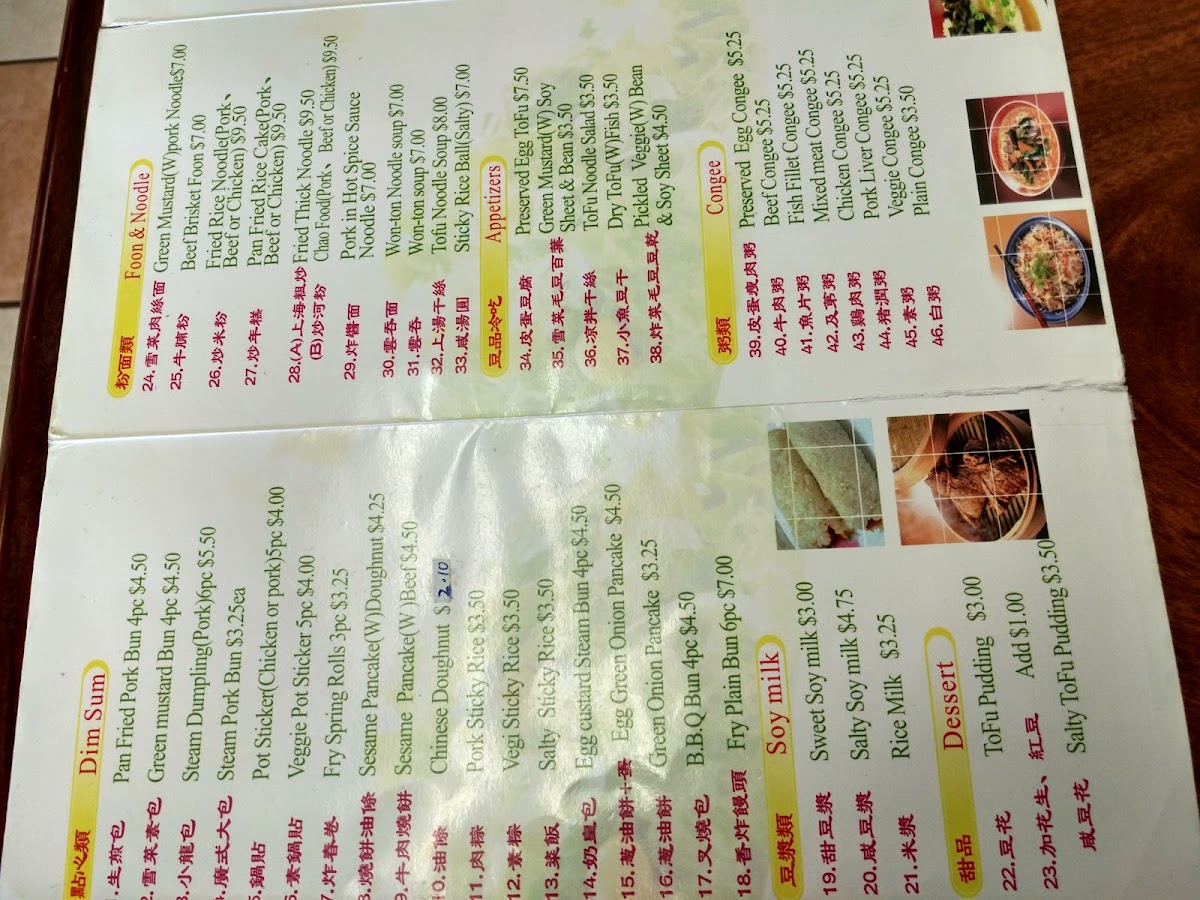 點心類 Dim Sum
1.生煎包 Pan Fried Pork Bun 4pc $4.50
2.雪菜素包 Green mustard Bun 4pc $4.50
3.小龍包 Steam Dumpling(Pork)6pc $5.50
4.廣式大包 Steam Pork Bun $3.25ea
5.鍋貼 Pot Sticker(Chicken or pork)5pc $4.00
6.素鍋貼 Veggie Pot Sticker 5pc $4.00
7.炸春卷 Fry Spring Rolls 3pc $3.25
8.燒餅油條 Sesame Pancake(W)Doughnut $4.25
9.牛肉燒餅 Sesame Pancake(W)Beef $4.50
10.油條 Chinese Doughnut $ 2.10
11.肉粽 Pork Sticky Rice $3.50
12.素粽 Vegi Sticky Rice $3.50
13.菜飯 Salty Sticky Rice $3.50
14.奶皇包 Egg custard Steam Bun 4pc $4.50
15.蔥油餅+蛋 Egg Green Onion Pancake $4.50
16.蔥油餅 Green Onion Pancake $3.25
17.叉燒包 B.B.Q Bun 4pc $4.50
18.香炸饅頭 Fry Plain Bun 6pc $7.00
豆漿類 Soy milk
19.甜豆漿 Sweet Soy milk $3.00
20.咸豆漿 Salty Soy milk $4.75
21.米漿 Rice Milk $3.25
甜品 Dessert
22.豆花 ToFu Pudding $3.00
23.加花生、紅豆 Add $1.00
咸豆花 Salty ToFu Pudding $3.50
粉面類 Foon & Noodle
24.雪菜肉絲面 Green Mustard(W)pork Noodle$7.00
25.牛腩粉 Beef Brisket Foon $7.00
26.炒米粉 Fried Rice Noodle(Pork、
Beef or Chicken) $9.50
27.炒年糕 Pan Fried Rice Cake(Pork、
Beef or Chicken) $9.50
28.(A)上海粗炒 Fried Thick Noodle $9.50
(B)炒河粉 Chao Food(Pork、 Beef or Chicken) $9.50
29.炸醬面 Pork in Hot Spice Sauce
Noodle $7.00
30.雲吞面 Won-ton Noodle soup $7.00
31.雲吞 Won-ton soup $7.00
32.上湯干絲 Tofu Noodle Soup $8.00
33.咸湯圓 Sticky Rice Ball(Salty) $7.00
豆品冷吃 Appetizers
34.皮蛋豆腐 Preserved Egg ToFu $7.50
35.雪菜毛豆百葉 Green Mustard(W) Soy
Sheet & Bean $3.50
36.涼拌干絲 ToFu Noodle Salad $3.50
37.小魚豆干 Dry ToFu(W)Fish $3.50
38.炸菜毛豆豆乾 Pickled Veggie(W) Bean
& Soy Sheet $4.50
粥類 Congee
39.皮蛋瘦肉粥 Preserved Egg Congee $5.25
40.牛肉粥 Beef Congee $5.25
41.魚片粥 Fish Fillet Congee $5.25
42.及第粥 Mixed meat Congee $5.25
43.雞肉粥 Chicken Congee $5.25
44.猪潤粥 Pork Liver Congee $5.25
45.素粥 Veggie Congee $5.25
46.白粥 Plain Congee $3.50